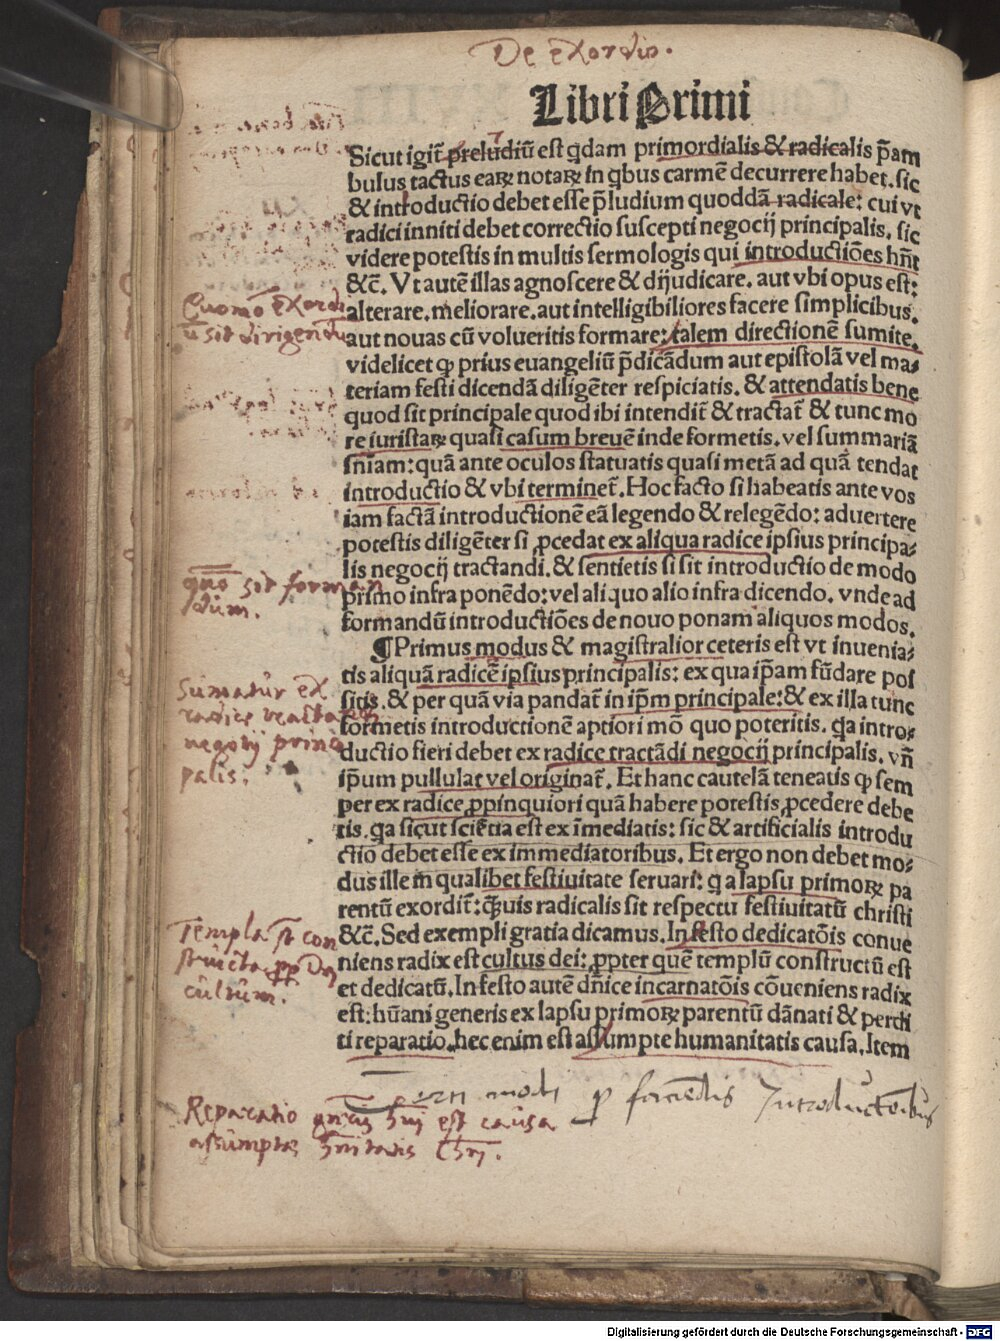 De exordis.
Libri Primi
Sicut igit̃ preludiũ est q̃dam primordialis & radicalis p̃am
bulus tactus earꝝ notarꝝ in qͥbus carmẽ decurrere habet. sic
& introductio debet esse p̃ludium quoddã radicale: cui vt
radici inniti debet correctio suscepti negocij principalis. sic
videre potestis in multis sermologis qui introductiões hñt
&c̃. Vt autẽ illas agnoscere & dijudicare. aut vbi opus est:
Quomõ exordi
alterare. meliorare. aut intelligibiliores facere simplicibus.
ũ sit dirigendũ
aut nouas cũ volueritis formare: talem directionẽ sumite.
videlicet ꝙ prius euangeliũ p̃dicãdum aut epistolã vel ma⸗
teriam festi dicendã diligẽter respiciatis. & attendatis bene
quod sit principale quod ibi intendit̃ & tractat̃ & tunc mo
re iuristarꝝ quasi casum breuẽ inde formetis. vel summariã
sñiam: quã ante oculos statuatis quasi metã ad quã tendat
introductio & vbi terminet̃. Hoc facto si habeatis ante vos
iam factã introductionẽ eã legendo & relegẽdo: aduertere
potestis diligẽter si ꝓcedat ex aliqua radice ipsius principa⸗
lis negocij tractandi. & sentietis si sit introductio de modo
quõ sit forman
primo infra ponẽdo: vel aliquo alio infra dicendo. vnde ad
dum.
formandũ introductiões de nouo ponam aliquos modos.
¶Primus modus & magistralior ceteris est vt inuenia⸗
tis aliquã radicẽ ipsius principalis: ex qua ip̃am fũdare pos
Sumatur ex
sitis. & per quã via pandat̃ in ip̃m principale: & ex illa tunc
radice
formetis introductionẽ aptiori mõ quo poteritis. q̃a intro⸗
negotij princi
ductio fieri debet ex radice tractãdi negocij principalis. vñ
palis.
ip̃um pullulat vel originat̃. Et hanc cautelã teneatis ꝙ sem
per ex radice ꝓpinquiori quã habere potestis ꝓcedere debe
tis. q̃a sicut sciẽtia est ex ĩmediatis: sic & artificialis introdu
ctio debet esse ex immediatoribus. Et ergo non debet mo⸗
dus ille in qualibet festiuitate seruari: ꝙ a lapsu primorꝝ pa
rentũ exordit̃: q̃uis radicalis sit respectu festiuitatũ christi
Templa st̃ con
&c̃. Sed exempli gratia dicamus. In festo dedicatõis conue
structa ꝓp̃ Dei
niens radix est cultus dei: ꝓpter quẽ templũ constructũ est
cultum.
et dedicatũ. In festo autẽ dñice incarnatõis cõueniens radix
est: hũani generis ex lapsu primorꝝ parentũ dãnati & perdi
ti reparatio. hec enim est assumpte humanitatis causa. Item
modi ꝓ faciẽdis Introductiõibus
Reparatio gñis hũi est causa
assumptae hũnitatis Chr̃i.
Digitalisierung gefördert durch die Deutsche Forschungsgemeinschaft - DFG